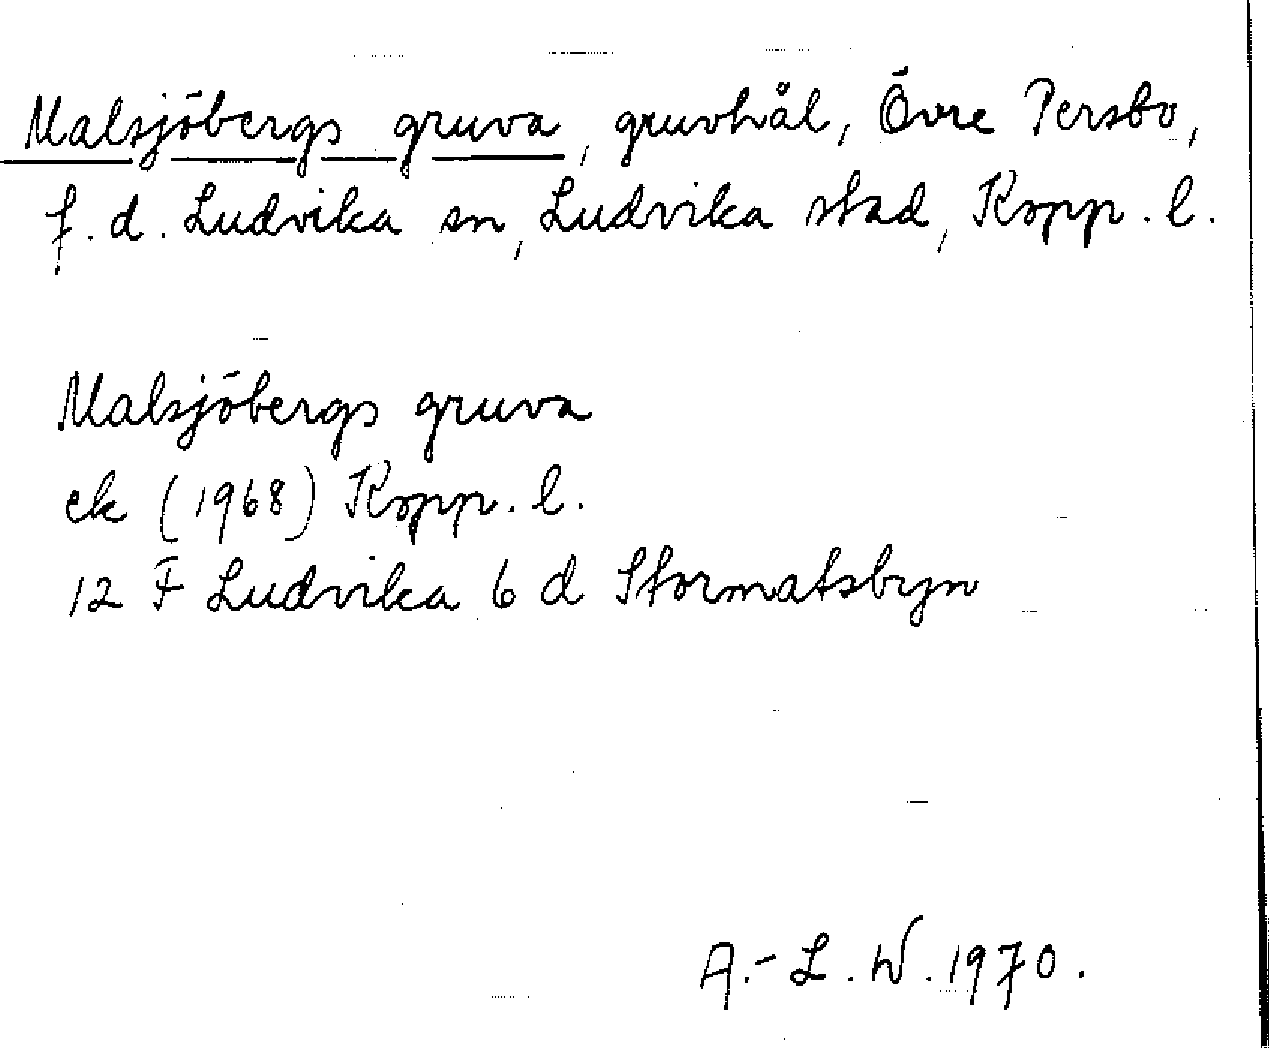 Malsjöbergs gruva, gruvhål, Övre Persbo,
f.d. Ludvika sn, Ludvika stad, Kopp. l.
Malsjöbergs gruva
ek (1968) Kopp. l.
12 F Ludvika 6 d Stormatsbyn
A.-L.W. 1970.